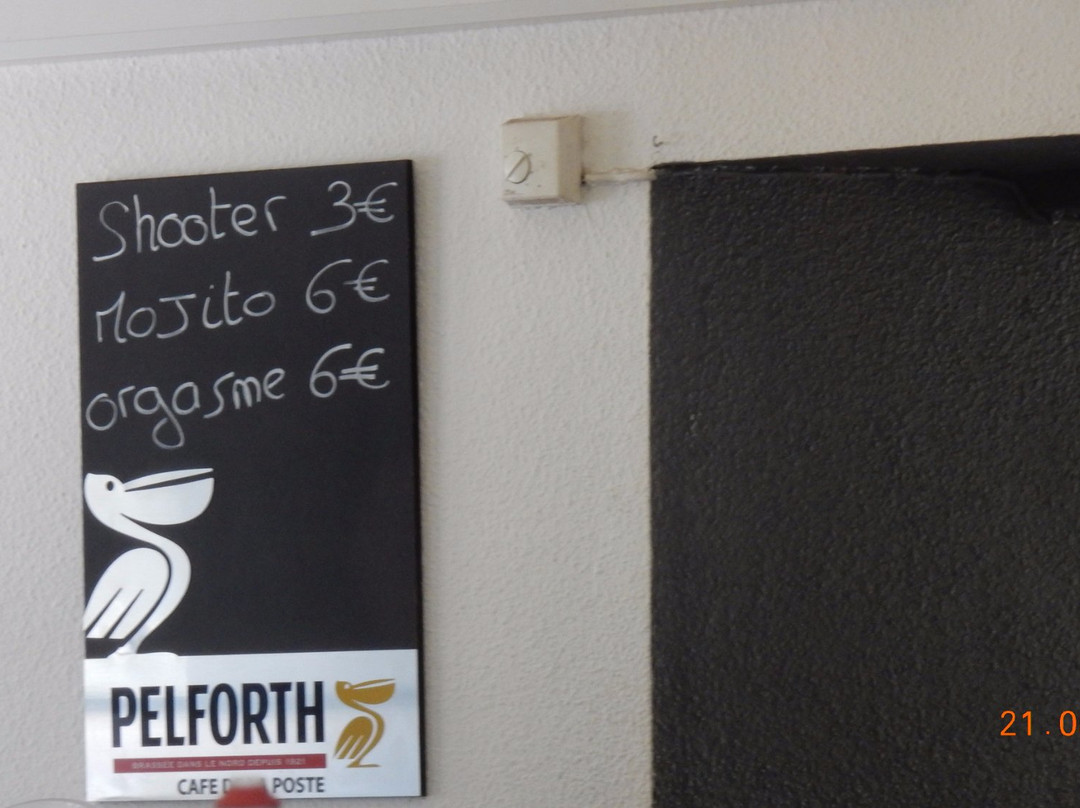 Shooter 3€
Mojito 6€
orgasme 6€
PELFORTH
BRASSÉE DANS LE NORD DEPUIS 1921
CAFE POSTE
21.0